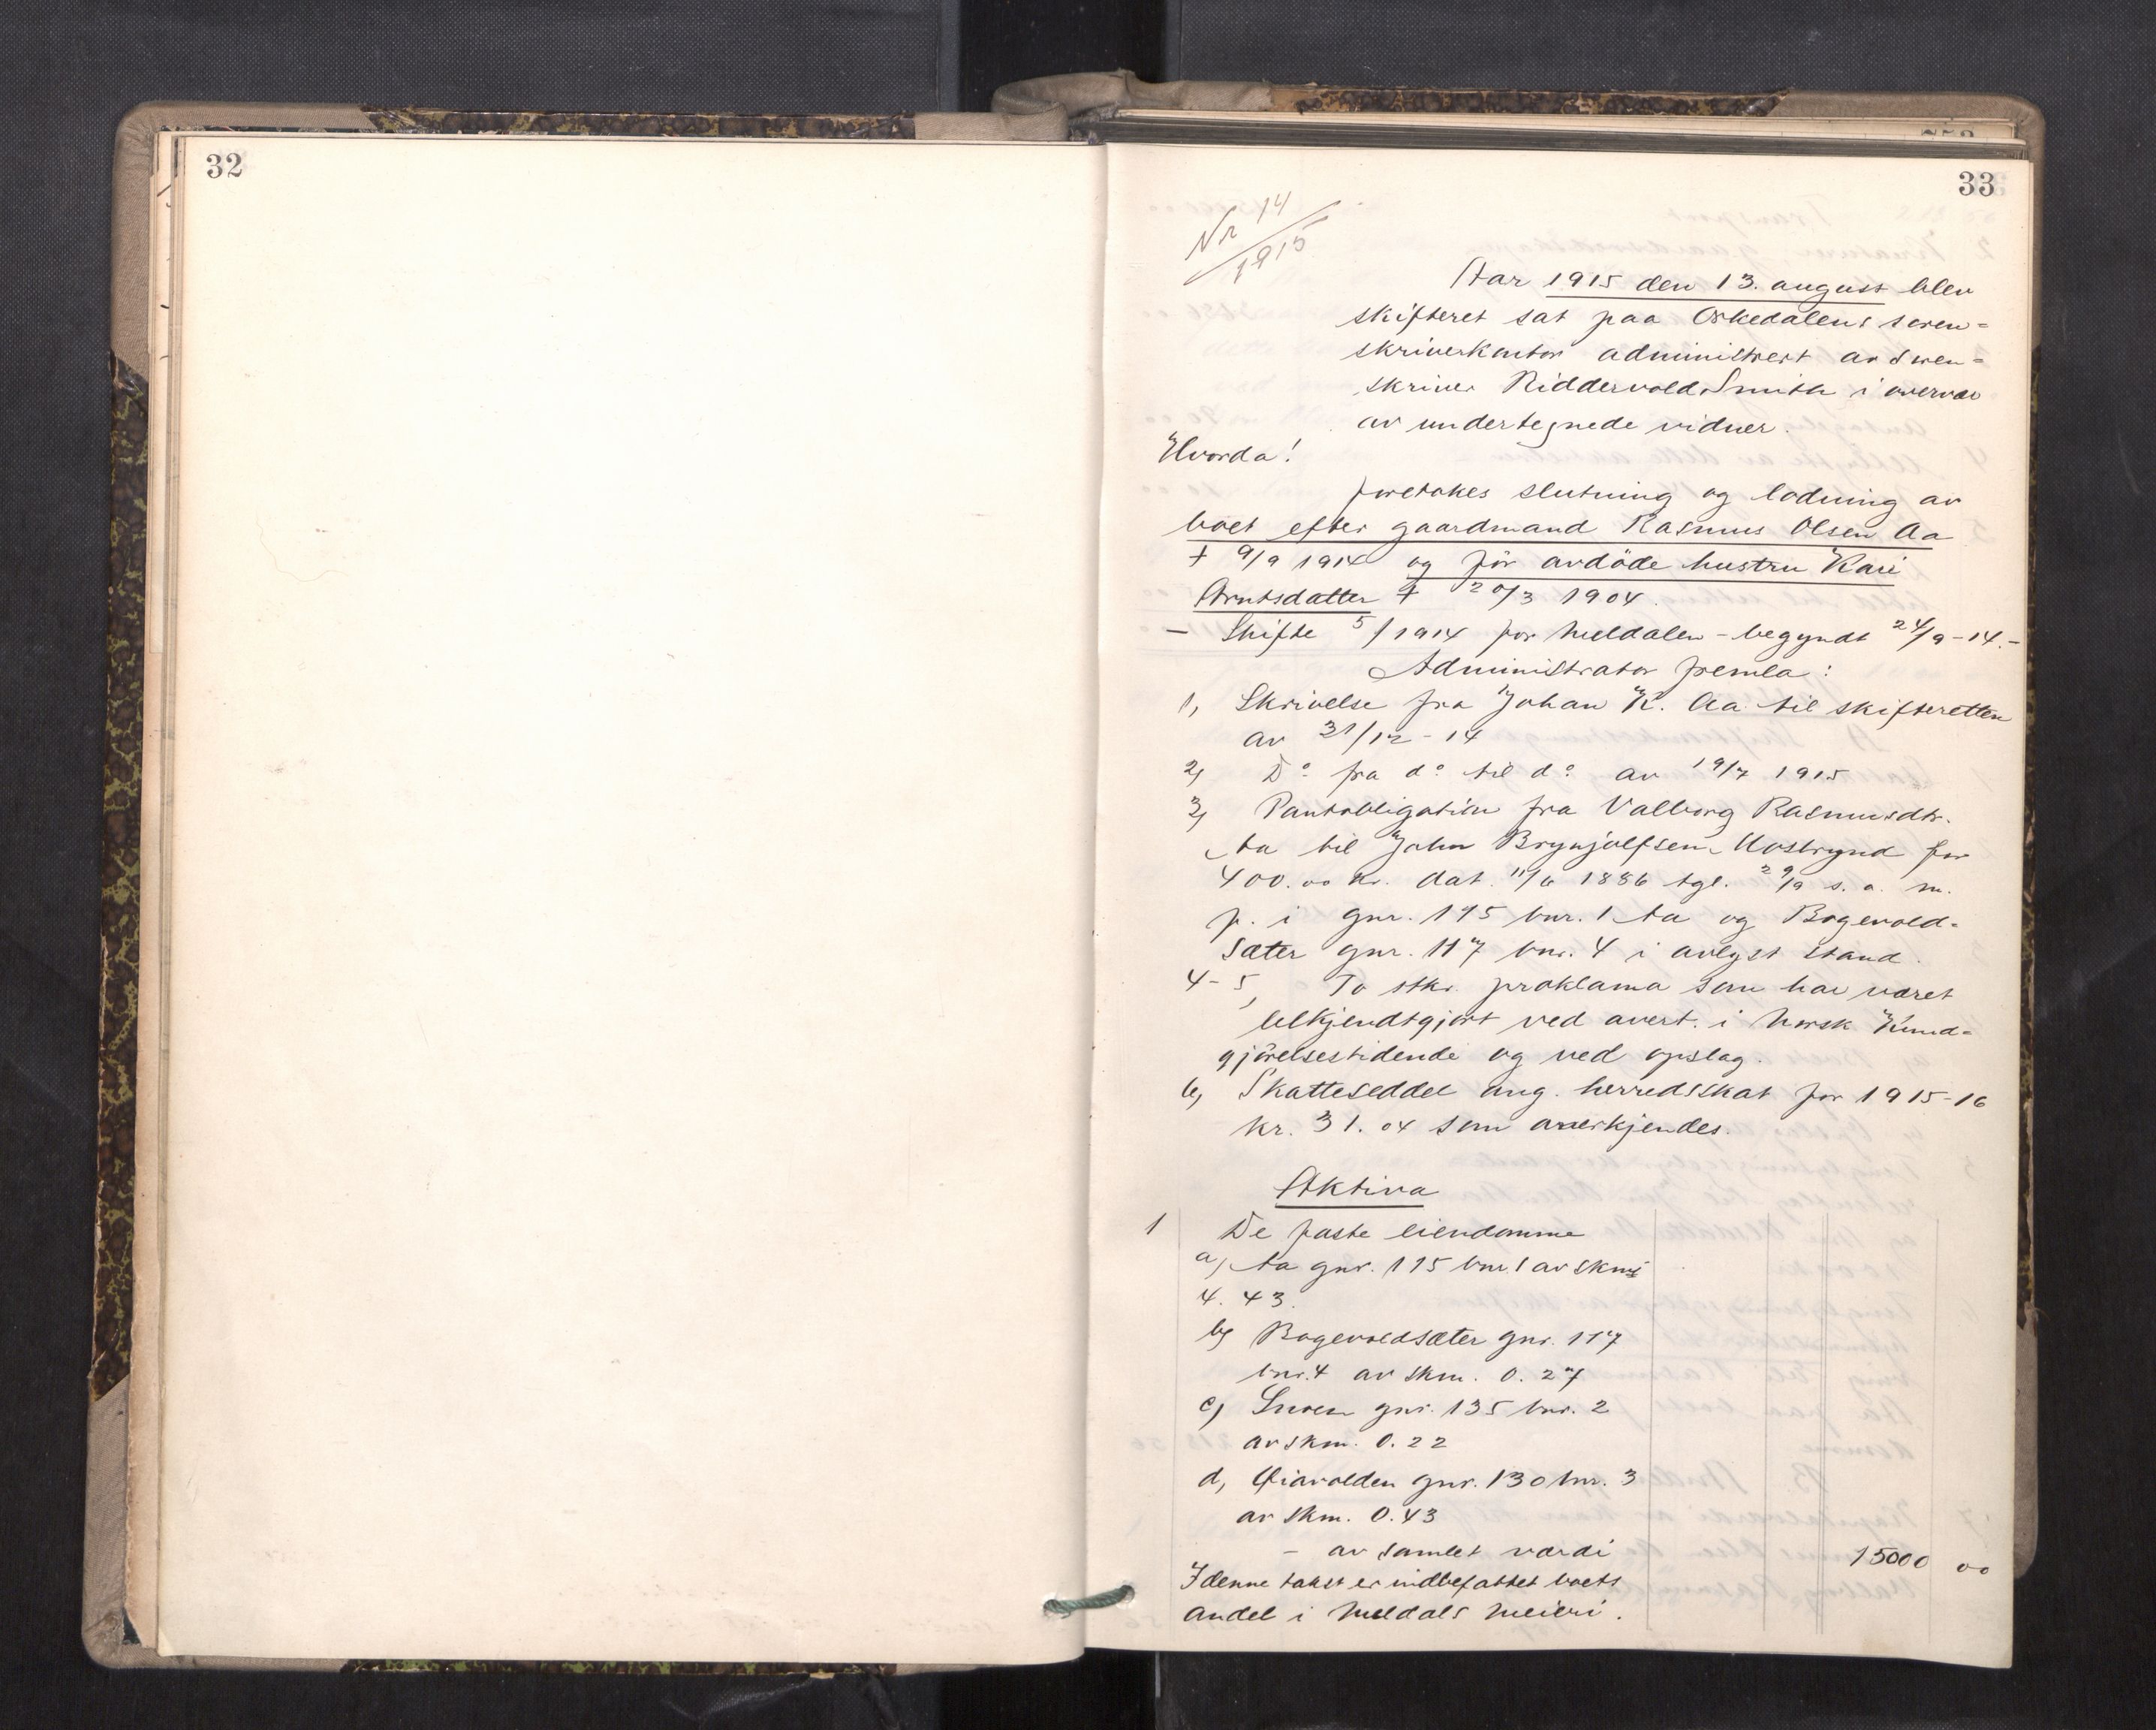 32
33
Nr 14
1915
Aar 1915 den 13. august blev
skifteret sat paa Orkedalens soren=
skriverkontor administrert av soren=
skriver Riddervold Smith i overvær
av undertegnede vidner.
Hvorda!
foretokes slutning og lodning av
boet efter gaardmand Rasmus Olsen Aa
† 9/9 1914 og før avdöde hustru Kari
Arntsdatter † 20/3 1904.
– Skifte 5/1914 for Meldalen – begyndt 24/9-14.–
Administrator fremla:
1, Skrivelse fra Johan K. Aa til skifteretten
av 31/12 - 14
2, Do fra do til do av 19/7 1915
3, Pantobligation fra Valborg Rasmusdtr.
Aa til John Brynjolfsen for
400.00 kr. dat. 11/6 1886 tgl. 29/9 s. a. m.
p. i gnr. 115 bnr. 1 Aa og Bogevold=
sæter gnr. 117 bnr. 4 i avlyst stand.
4-5, To stkr. proklama som har været
bekjendtgjort ved avert. i Norsk Kund=
gjörelsestidende og ved opslag.
6, Skatteseddel ang. herredsskat for 1915-16
kr. 31.04 som anerkjendes.
Aktiva
1 De faste eiendomme
a, Aa gnr. 115 bnr. 1 av skm
4. 43.
b, Bogevoldsæter gnr. 117
bnr. 4 av skm. 0. 27
c, Snoen gnr. 135 bnr. 2
av skm. 0. 22
d, gnr. 130 bnr. 3
av skm. 0.43
– av samlet værdi 15000 00
I denne takst er indbefattet boets
andel i Meldals Meieri.